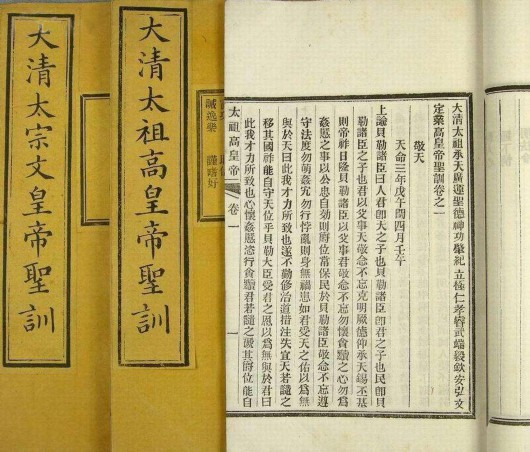 大清太祖承天廣運聖德神功肇紀立極仁孝睿武端毅欽安弘文
定業高皇帝聖訓卷之一
敬天
天命三年戊午閏四月壬午
上諭貝勒諸臣曰人君即天之子也貝勒諸臣即君之子也民即貝
勒諸臣之子也君以父事天敬念不忘克明厥德仰承天錫丕基
則帝祚日隆貝勒諸臣以父事君敬念不忘勿懷貪黷之心勿為
姦慝之事以公忠自効則爵位常保民於貝勒諸臣敬念不忘遵
守法度勿萌姦宄勿行悖亂則身無禍患如君受天之佑以為無
與於天曰此我才力所致也遂不勤修治道措注失宜天若譴之
移其國祚能自守天位乎貝勒大臣受君之恩以為無與於君曰
此我才力所致也心懷姦慝恣行貪黷君若譴之其爵位能自
太祖高皇帝 卷一 一
謹嗜好
誡逸樂
大清太祖高皇帝聖訓
大清太宗文皇帝聖訓